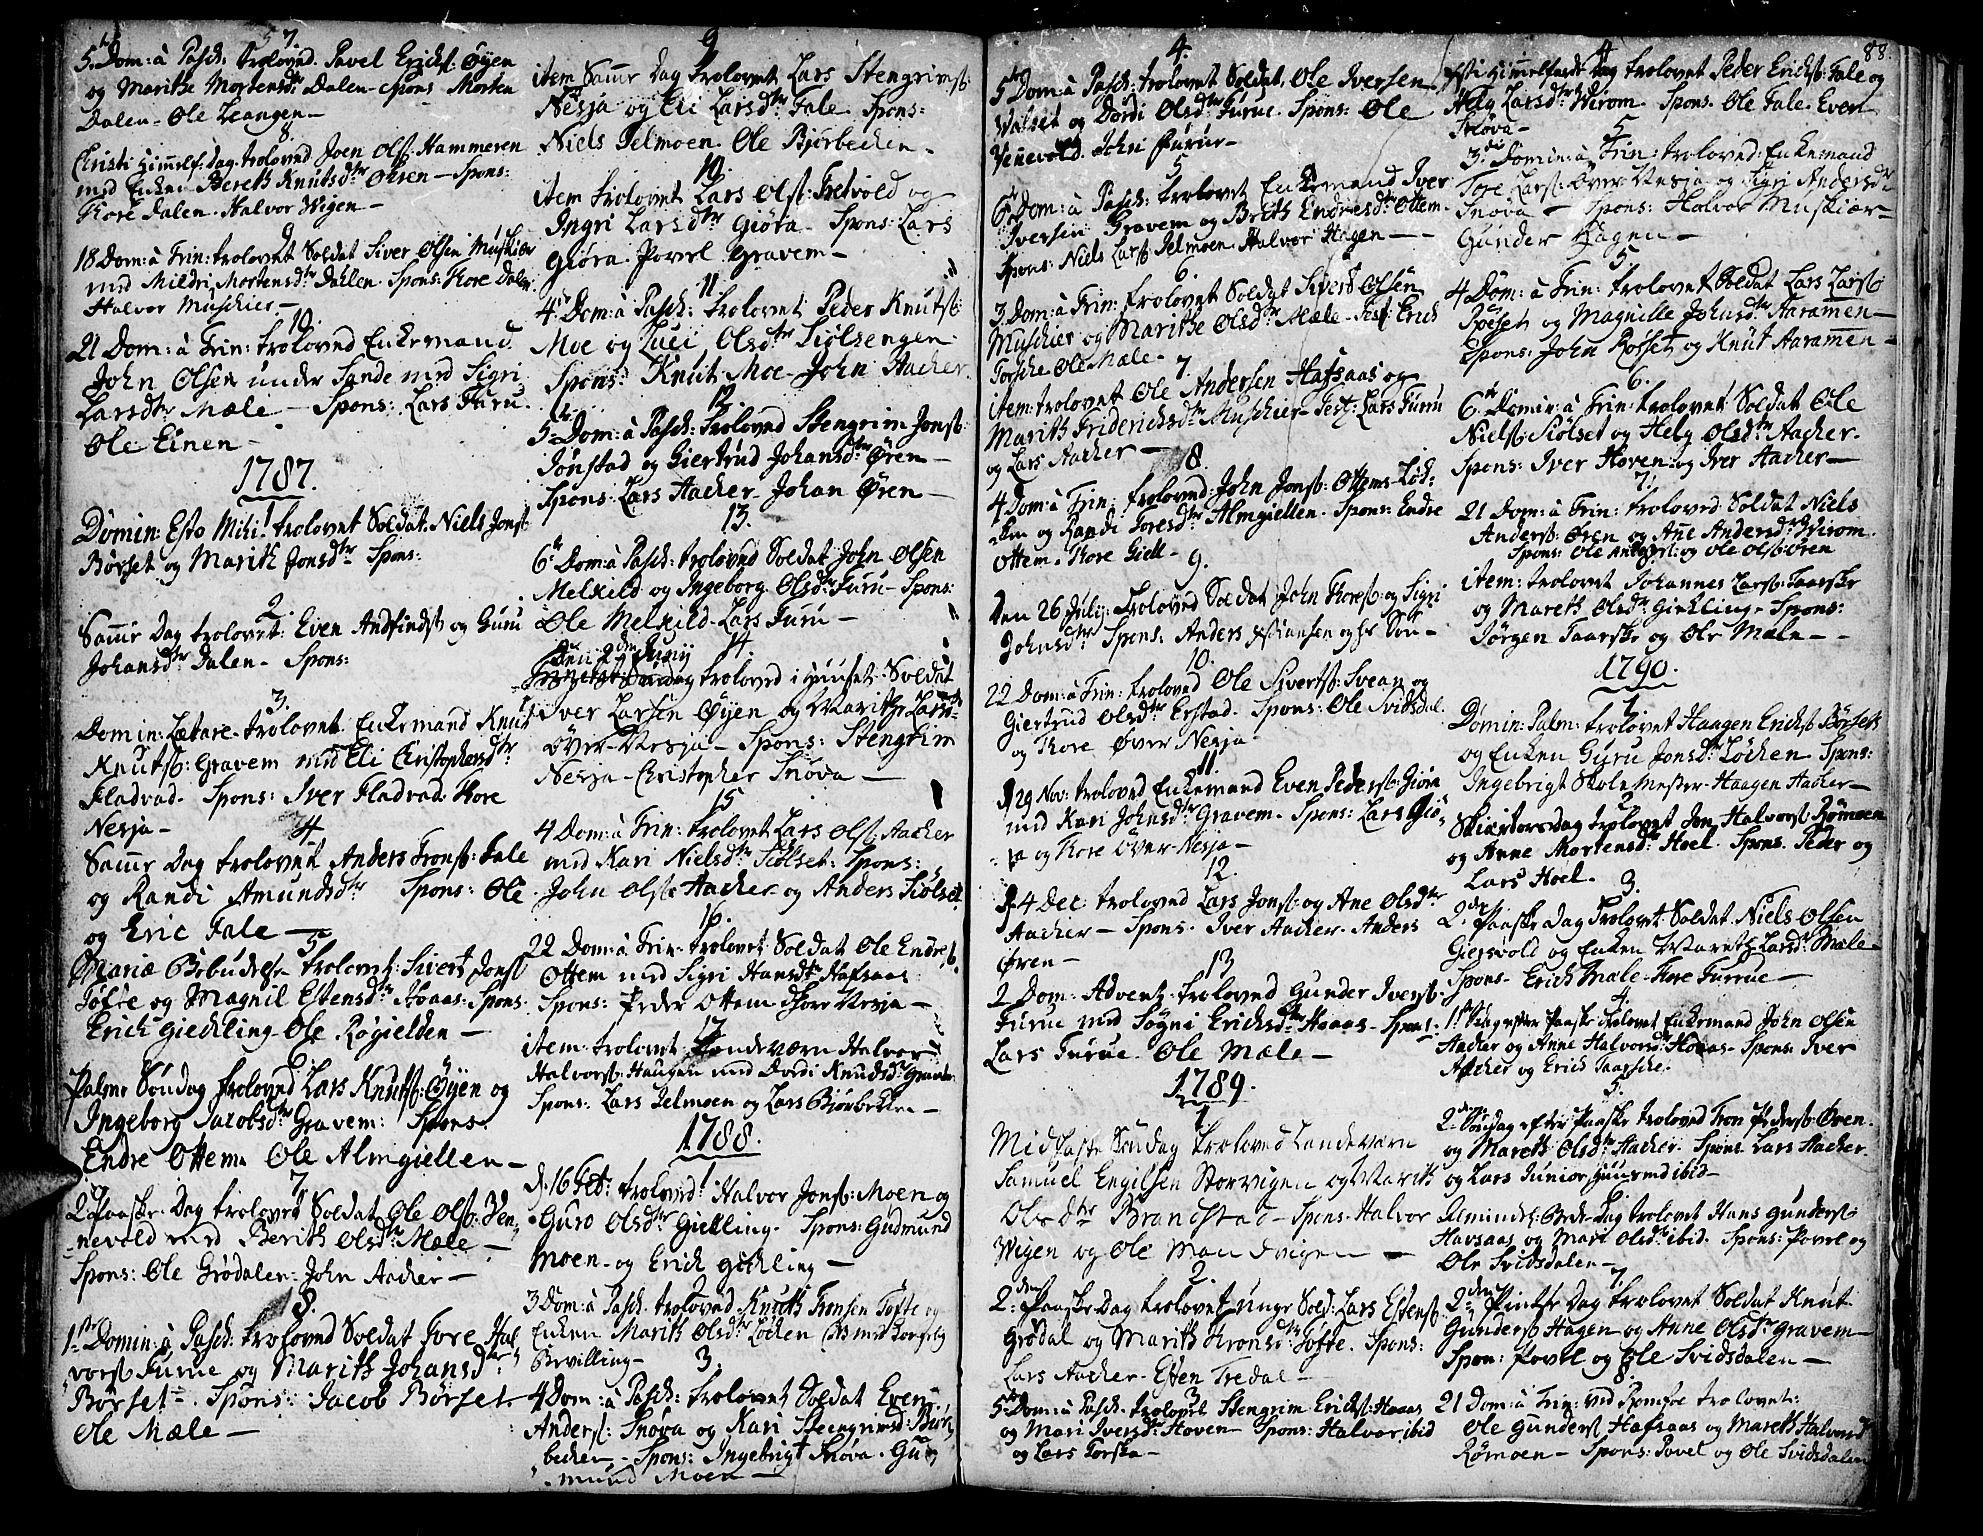 7.
5. Dom: à Pasch: troloved Pavel Ericks: Øyen
og Marithe Mortensdtr Dalen - Spons Morten
Dalen - Ole Leangen -
8
Christi Himelf: Dag troloved Joen Ols: Hammeren
med Enken Bereth Knutsdtr Øhren - Spons:
Tore Dalen. Halvor Wigen -
9
18 Dom: à Trin: trolovet Soldat Siver Olsen Muschier
med Mildri Mortensdtr Dahlen. Spons: Tore Dalen
Halvor Muschier -
10
21 Dom: à Trin: troloved Enkemand
John Olsen under Sande med Sigri
Larsdtr Mæle - Spons: Lars Furu.
Ole Einen -
1787.
1
Domin: Esto Mihi trolovet Soldat Niels Jonss:
Børset og Marith Jonsdtr Spons:
2.
Same Dag trolovet: Even Andfinds: og Guru
Johansdtr Dalen - Spons:
3.
Domin: Lætare - trolovet Enkemand Knut
Knuts: Gravem med Eli Christophersdtr
Fladvad. Spons: Iver Fladvad. Tore
Nesja -
4
Same Dag trolovet Anders Trons: Fale
og Randi Amundsdtr Spons: Ole
og Eric Fale -
5
Mariæ Bebudelse trolovet: Sivert Jons:
Tofte og Magnil Estensdtr Hoaas: Spons
Erich Giechling - Ole Røgielden -
6
Palme Søndag troloved Lars Knuts: Øyen og
Ingeborg Jacobsdtr Gravem: Spons
Endre Ottem. Ole Almgiellen -
7
2. Paaske Dag trolovet Soldat Ole Ols: Ven-
nevold med Berith Olsdtr Mæle -
Spons: Ole Grødalen: John Aacher -
8.
1te Domin: à Pasch: trolovet Soldat Tore Hal-
vors: Furue og Marith Johansdtr
Børset - Spons: Jacob Børset.
Ole Mæle -
9
item Same Dag trolovet Lars Stengrims:
Nesja og Eli Larsdtr Fale. Spons:
Niels Jelmoen. Ole Bjørbechen -
10.
item trolovet Lars Ols: Tredvold og
Ingri Larsdtr Giøra. Spons: Lars
Giøra. Povel Gravem -
11.
4 Dom: à Pasch: trolovet Peder Knuts:
Moe og Luci Olsdtr Siølsengen
Spons: Knut Moe - John Aacher.
12.
5te Dom: à Pasch: troloved Stengrim Jons:
Jønstad og Giertrud Johansdtr Øren -
Spons: Lars Aacher - Johan Øren -
13.
6te Dom: à Pasch: trolovet Soldat John Olsen
Melkild og Ingeborg Olsdtr Furu - Spons:
Ole Melkild - Lars Furu -
14.
Den 2den Junij
trolovet i Huuset: Soldat
Iver Larsen Øyen og Marithe Larsd:
Over-Nesja - Spons: Stengrim
Nesja - Christopher Snøva -
15
4 Dom: à Trin: trolovet Lars Ols: Aacher
med Kari Nielsdtr Siølset: Spons:
John Ols: Aacher og Anders Siølset
16.
22 Dom: à Trin: trolovet Soldat Ole Endres:
Ottem med Sigri Hansdtr Hafsaas
Spons: Peder Ottem Tore Nesja -
17
item: trolovet Landeværn Halvor
Halvors: Haugen med Dordi Knudsdtr Gravem
Spons: Lars Jelmoen og Lars Biørbekken -
1788.
1
d. 16 Feb: trolovet: Halvor Jons: Moen og
Guro Olsdtr Giekling - Spons: Gudmund
Moen - og Erich Gichling -
3 Dom: à Pasch: troloved Knuth Tronsen Tofte og
Enken Marith Olsdtr Løcken
Bevilling -
3.
4 Dom: à Pasch: trolovet Soldat Even
Anders: Snøva og Kari Stengrimsd: Biør-
bechen - Spons: Ingebrigt Snøva. Gud-
mund Moen -
4.
5te Dom: à Pasch: trolovet Soldat Ole Iversen
Walset og Dordi Olsdtr Furue. Spons: Ole
Venevold. John Furue -
5
6te Dom: à Pasch: trolovet Enkemand Iver
Iversen Gravem og Brith Endresdtr Ottem.
Spons: Niels Lars: Jelmoen. Halvor Hagen -
6.
3. Dom: à Trin: trolovet Soldat Siverd Olsen
Muschier og Marithe Olsdtr Mæle - Test: Erich
Torsche Ole Mæle -
7
item: trolovet Ole Andersen Hafsaas og
Marith Friderichsdtr Muschier - Test: Lars Furru
og Lars Aacher -
8.
4 Dom: à Trin: trolovet John Jons: Ottems-Lød-
en og Randi Toresdtr Almgiellen. Spons: Endre
Ottem. Tore Giell -
9.
Den 26 Julij: trolovet Soldat John Tores: og Sigri
Johnsdtr Spons: Anders Christiansen og hs Søn -
10.
22 Dom: à Trin: trolovet Ole Siverts: Svean og
Giertrud Olsdtr Erstad. Spons: Ole Svidsdal.
og Tore Over Nesja -
11
d. 29 Nov: trolovet Enkemand Even Peders: Giøra
med Kari Johnsdtr Gravem. Spons: Lars Giø-
ra og Tore Over-Nesja -
12.
d. 4 Dec: trolovet Lars Jons: og Ane Olsdtr
Aacher - Spons: Iver Aacher. Anders
Øren -
13
2 Dom: Advent: trolovet Gunder Ivers:
Furue med Sogni Ericksdtr Hoaas - Spons:
Lars Furue. Ole Mæle -
1789.
1
Midfaste Søndag trolovet Landeværn
Samuel Engilsen Storvigen og Marith
Olsdtr Brandstad - Spons: Halvor
Wigen og Ole Mandvigen -
2.
2den Paaske Dag trolovet unge Sold: Lars Estens:
Grødal og Marith Tronsdtr Tofte. Spons:
Lars Aacher - Esten Tredal -
3
5te Dom: à Pasch: trolovet Stengrim Ericks: Hoaas
og Mari Iversdtr Hoven - Spons: Halvor ibid
og Lars Torske -
88.
4
Christi Himmelfarts Dag trolovet Peder Ericks: Fale og
Helg Larsdtr Wirom. Spons. Ole Fale. Even
Snøva -
5
3die Domin: à Trin: trolovet: Enkemand
Tore Lars: Over-Nesja og Sigri Andersdtr
Snøva - Spons: Halvor Muskiær -
Gunder Hagen -
5
4 Dom: à Trin: trolovet Soldat Lars Lars:
Røeset og Magnille Johnsdtr Aaramen -
Spons: John Rosset og Knut Aaramen -
6.
6te Domin: à Trin: trolovet Soldat Ole
Niels: Siølset og Helg Olsdtr Aacher.
Spons: Iver Hoven og Iver Aacher -
7.
21 Dom: à Trin: trolovet Soldat Niels
Anders: Øren og Ane Andersdtr Wirom
Spons: Ole Anders: og Ole Ols: Øren
item: trolovet Johannes Lars: Taarske
og Mareth Olsdtr Giekling - Spons:
Jørgen Taarske og Ole Mæle -
1790.
1
Domin: Palm: trolovet Haagen Ericks: Børset
og Enken Guru Jonsdtr Løchen - Spons:
Ingebrigt Skole Mester - Haagen Aacher -
2
Skiærtorsdag trolovet Jon Halvors: Rømoen
og Anne Mortensdtr Hoel. Spons. Peder og
Lars Hoel.
3.
2den Paaske Dag trolovt: Soldat Niels Olsen
Giersvold og Enken Mareth Larsdtr Mæle -
Spons - Erich Mæle - Tore Furrue -
4.
1ste Søndag efter Paaske trolovet Enkemand John Olsen
Aacher og Anne Halvorsdtr Hoaas - Spons: Iver
Aacher og Erich Taarsche.
5.
2den Søndag efter Paaske trolovet Tron Peders: Øven
og Mareth Olsdtr Aacher. Spons Lars Aacher
og Lars Junior, Huusmd ibid -
Almindel: Bede-Dag trolovet Hans Gunders:
Havsaas og Mari Olsdtr ibid. Spons: Povel og
Ole Svidsdalen -
7
2den Pintse Dag trolovet Soldat Knut
Gunders: Hagen og Anne Olsdtr Gravem -
Spon: Povel og Ole Svidsdalen -
21 Dom: à Trin: ved trolovet:
Ole Gunders: Hafsaas og Mareth Halvorsd
Rømoen - Spons: Povel og Ole Svidsdalen